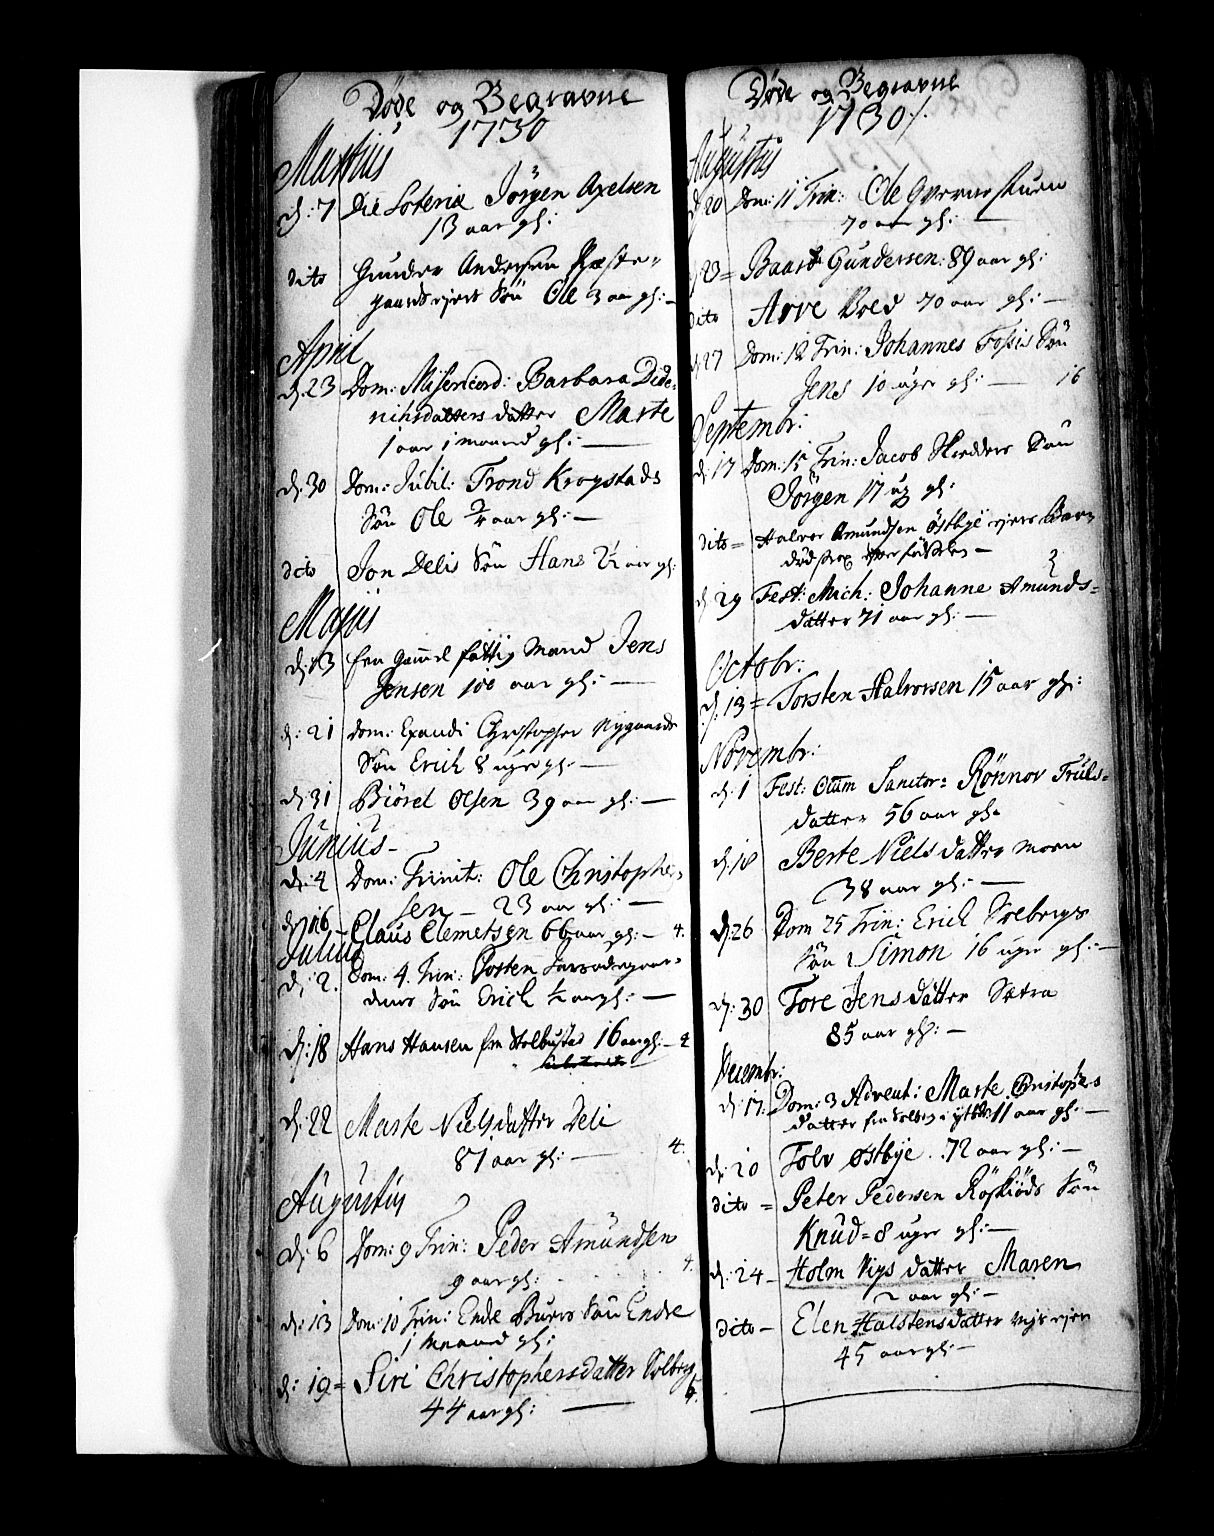 Døde og Begravne
1730
Martius
d: 7 Die Soteriæ Jörgen Axelsen
13 aar gl:
dito Gunder Andersen Præste-
gaards Sön Ole 3 aar gl:
April
d: 23 Dom: Misericord: Barbara Dide-
richsdatters datter Marte
1 aar 1 maaned gl:
d: 30 Dom: Jubil: Trond Krogstads
Sön Ole aar gl:
dito Jon Delis Sön Hans 2½ aar gl:
Maji
d: 13 En gamel fattig Mand Jens
Jensen 100 aar gl:
d: 21 Dom: Exaudi Christopher Nygaards
Sön Erich 8 uger gl:
d: 31 Biörel Olsen 39 aar gl:
Junius
d: 4 Dom: Trinit: Ole Christopher-
sen 23 aar gl:
d: 16 Claus Clemetsen 66 aar gl: 4.
Julius
d: 2. Dom. 4. Trin: Posten
Sön Erich ½ aar gl:
d: 18 Hans Hansen fra Holbustad 16 aar gl: 4
d: 22 Marte Nielsdatter Deli
81 aar gl: 4.
Augustus
d: 6 Dom: 9 Trin: Peder Amundsen
9 aar gl: 4.
d: 13 Dom: 10 Trin: Ende Buers Sön Endre
1 Maaned gl:
d: 19 = Siri Christophersdatter Solberg
44 aar gl: 5.
Døde og Begravne
1730 /.
Augustus
d 20 Dom: 11 Trin: Ole
70 aar gl:
Baard Gundersen: 89 aar gl:
dito Arve Boed 70 aar gl:
d: 27 Dom: 12 Trin: Johannes Fossis Sön
Jens 10 uger gl: 16
Septembr:
d: 17 Dom: 15 Trin: Jacob Skredders Sön
Jörgen 17 ug gl:
dito = Halvor Amundsen Östbye ejers Barn
död strax efter födselen
d: 29 Fest: Mich: Johanne Amunds-
datter 71 aar gl: 2
Octobr:
d: 13 = Torsten Halvorsen 15 aar gl:
Novembr:
d: 1 Fest: Oium Sanctor: Rönnov Truls-
datter 56 aar gl:
d: 18 Berte Niels datter Moen
38 aar gl:
d: 26 Dom 25 Trin: Erich Solbergs
Sön Simon 16 uger gl:
d: 30 Tore Jens datter Sætra
85 aar gl:
Decembr:
d: 17: Dom: 3 Advent: Marte Christophers
datter fra Solberg i 11 aar gl:
d: 20 Tolv Østbye 72 aar gl:
dito = Peter Pedersen Röskiöds Sön
Knud = 8 uger gl:
d: 24 - Holm Vigs datter Maren
2 aar gl:
dito - Elen Halstensdatter
45 aar gl: